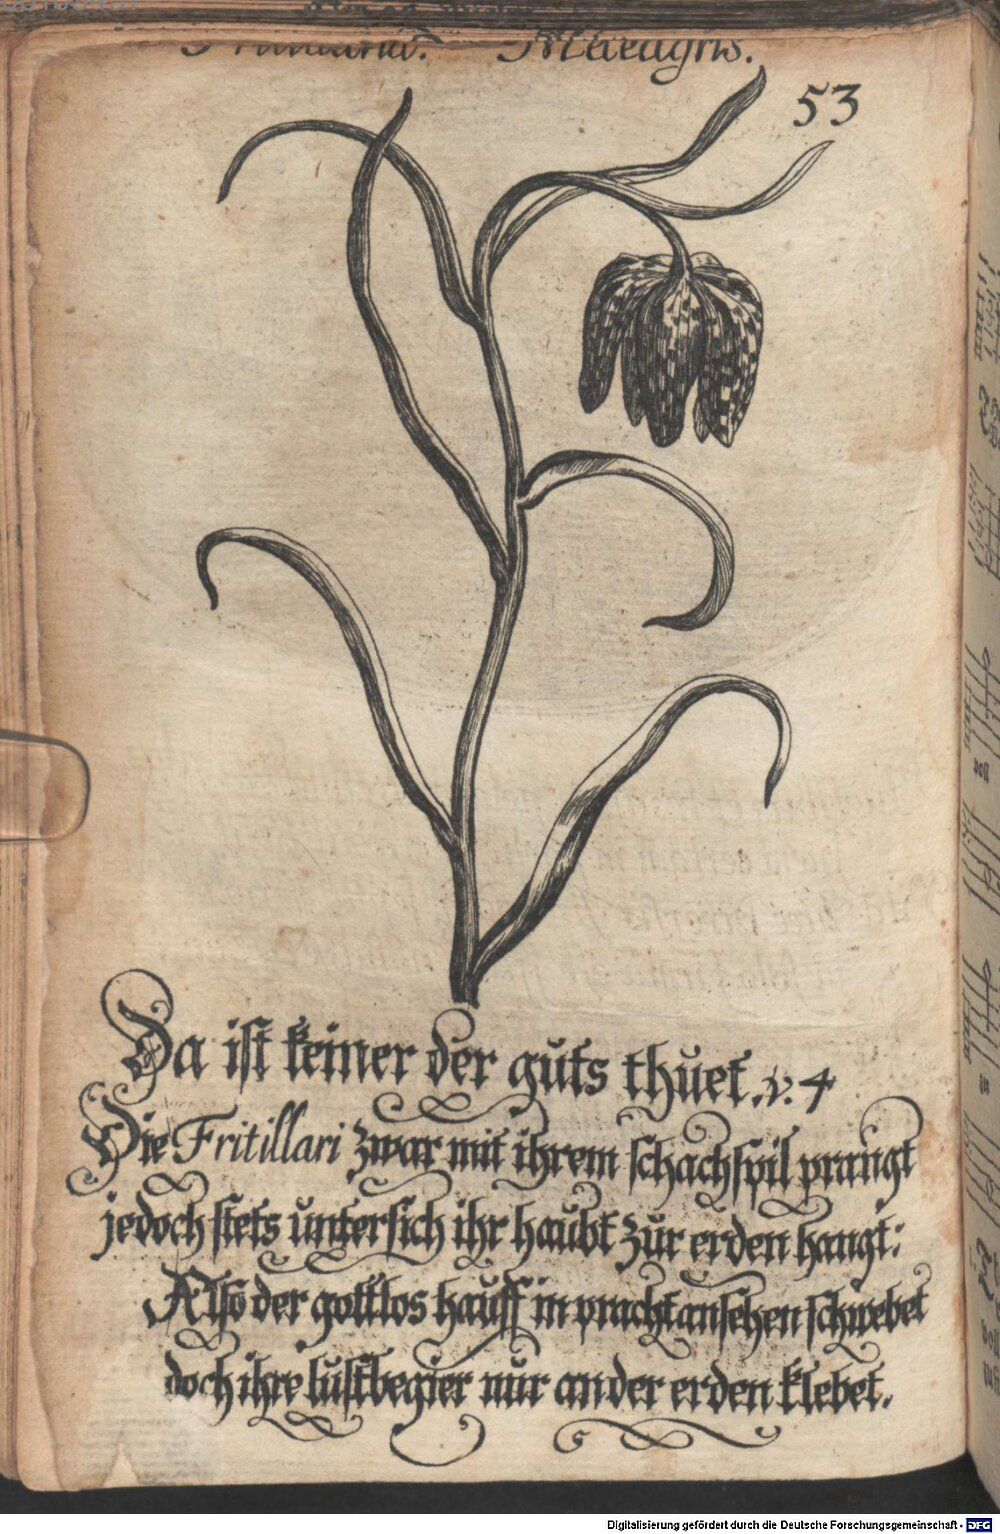 Meleagris.
53
Da ist keiner der guts thuet. v. 4
Die Fritillari zwar mit ihrem schachspil prangt
jedoch stets untersich ihr haubt zur erden hangt:
Also der gottlos hauff in pracht ansehen schwebet
doch ihre lustbegier nur an der erden klebet.
Digitalisierung gefördert durch die Deutsche Forschungsgemeinschaft - DFG